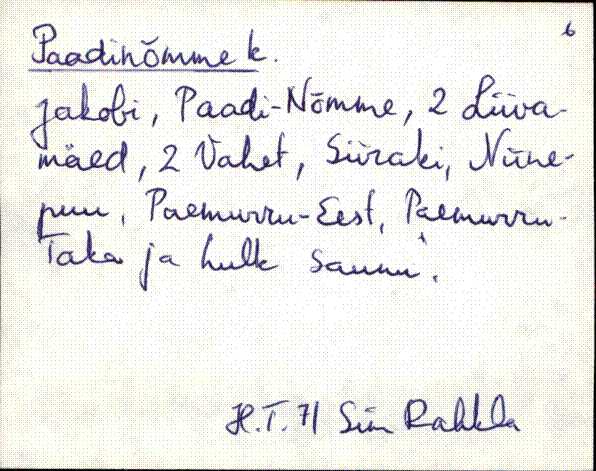 6
Paadinõmme k.
Jakobi, Paadi-Nõmme, 2 Liiva-
mäed, 2 Vahet, Siiraki, Niine-
puu, Paemurru-Eest, Paemurru-
Taka ja hulk saunu.
H.T. 71 Siim Rahkla